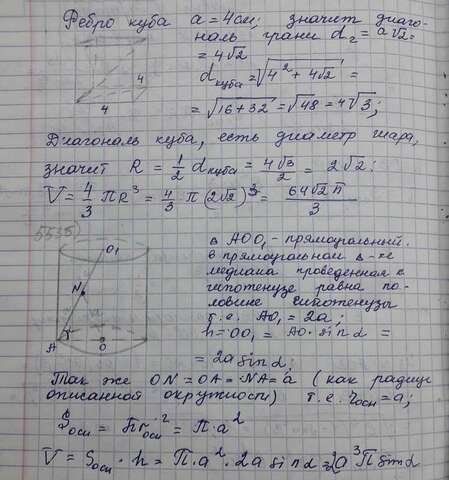 Ребро куба a=4см, значит диаго-
наль грани d₂ = a√2 =
= 4√2
d куба = √4² + 4√2² =
= √16+32 = √48 = 4√3;
4
4
Диагональ куба, есть диаметр шара,
значит R = 1/2 d шара = 4√3/2 = 2√2;
V = 4/3 πR³ = 4/3 π(2√2)³ = 64√2π/3
A
N
O
O₁
α
в AOO₁ - прямоугольный.
в прямоугольном Δ-ке
медиана проведённая к
гипотенузе равна по-
ловине гипотенузы
т.е. AO₁ = 2a;
h = OO₁ = AO₁ · sin α =
= 2a sin α;
Так же ON = OA = NA = a (как радиус
описанной окружности) т.е. r осн = a;
S осн = πr осн² = π·a²
V = S осн · h = π·a²·2a sin α = 2a³π sin α